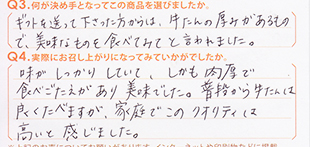 Q3.何が決め手となってこの商品を選びましたか。
ギフトを送って下さった方からは、牛たんの厚みがあるもの
で、美味なものを食べてみてと言われました。
Q4.実際にお召し上がりになってみていかがでしたか。
味がしっかりしていて、しかも肉厚で
食べごたえがあり美味でした。普段から牛たんは
良くたべますが、家庭でこのクオリティは
高いと感じました。